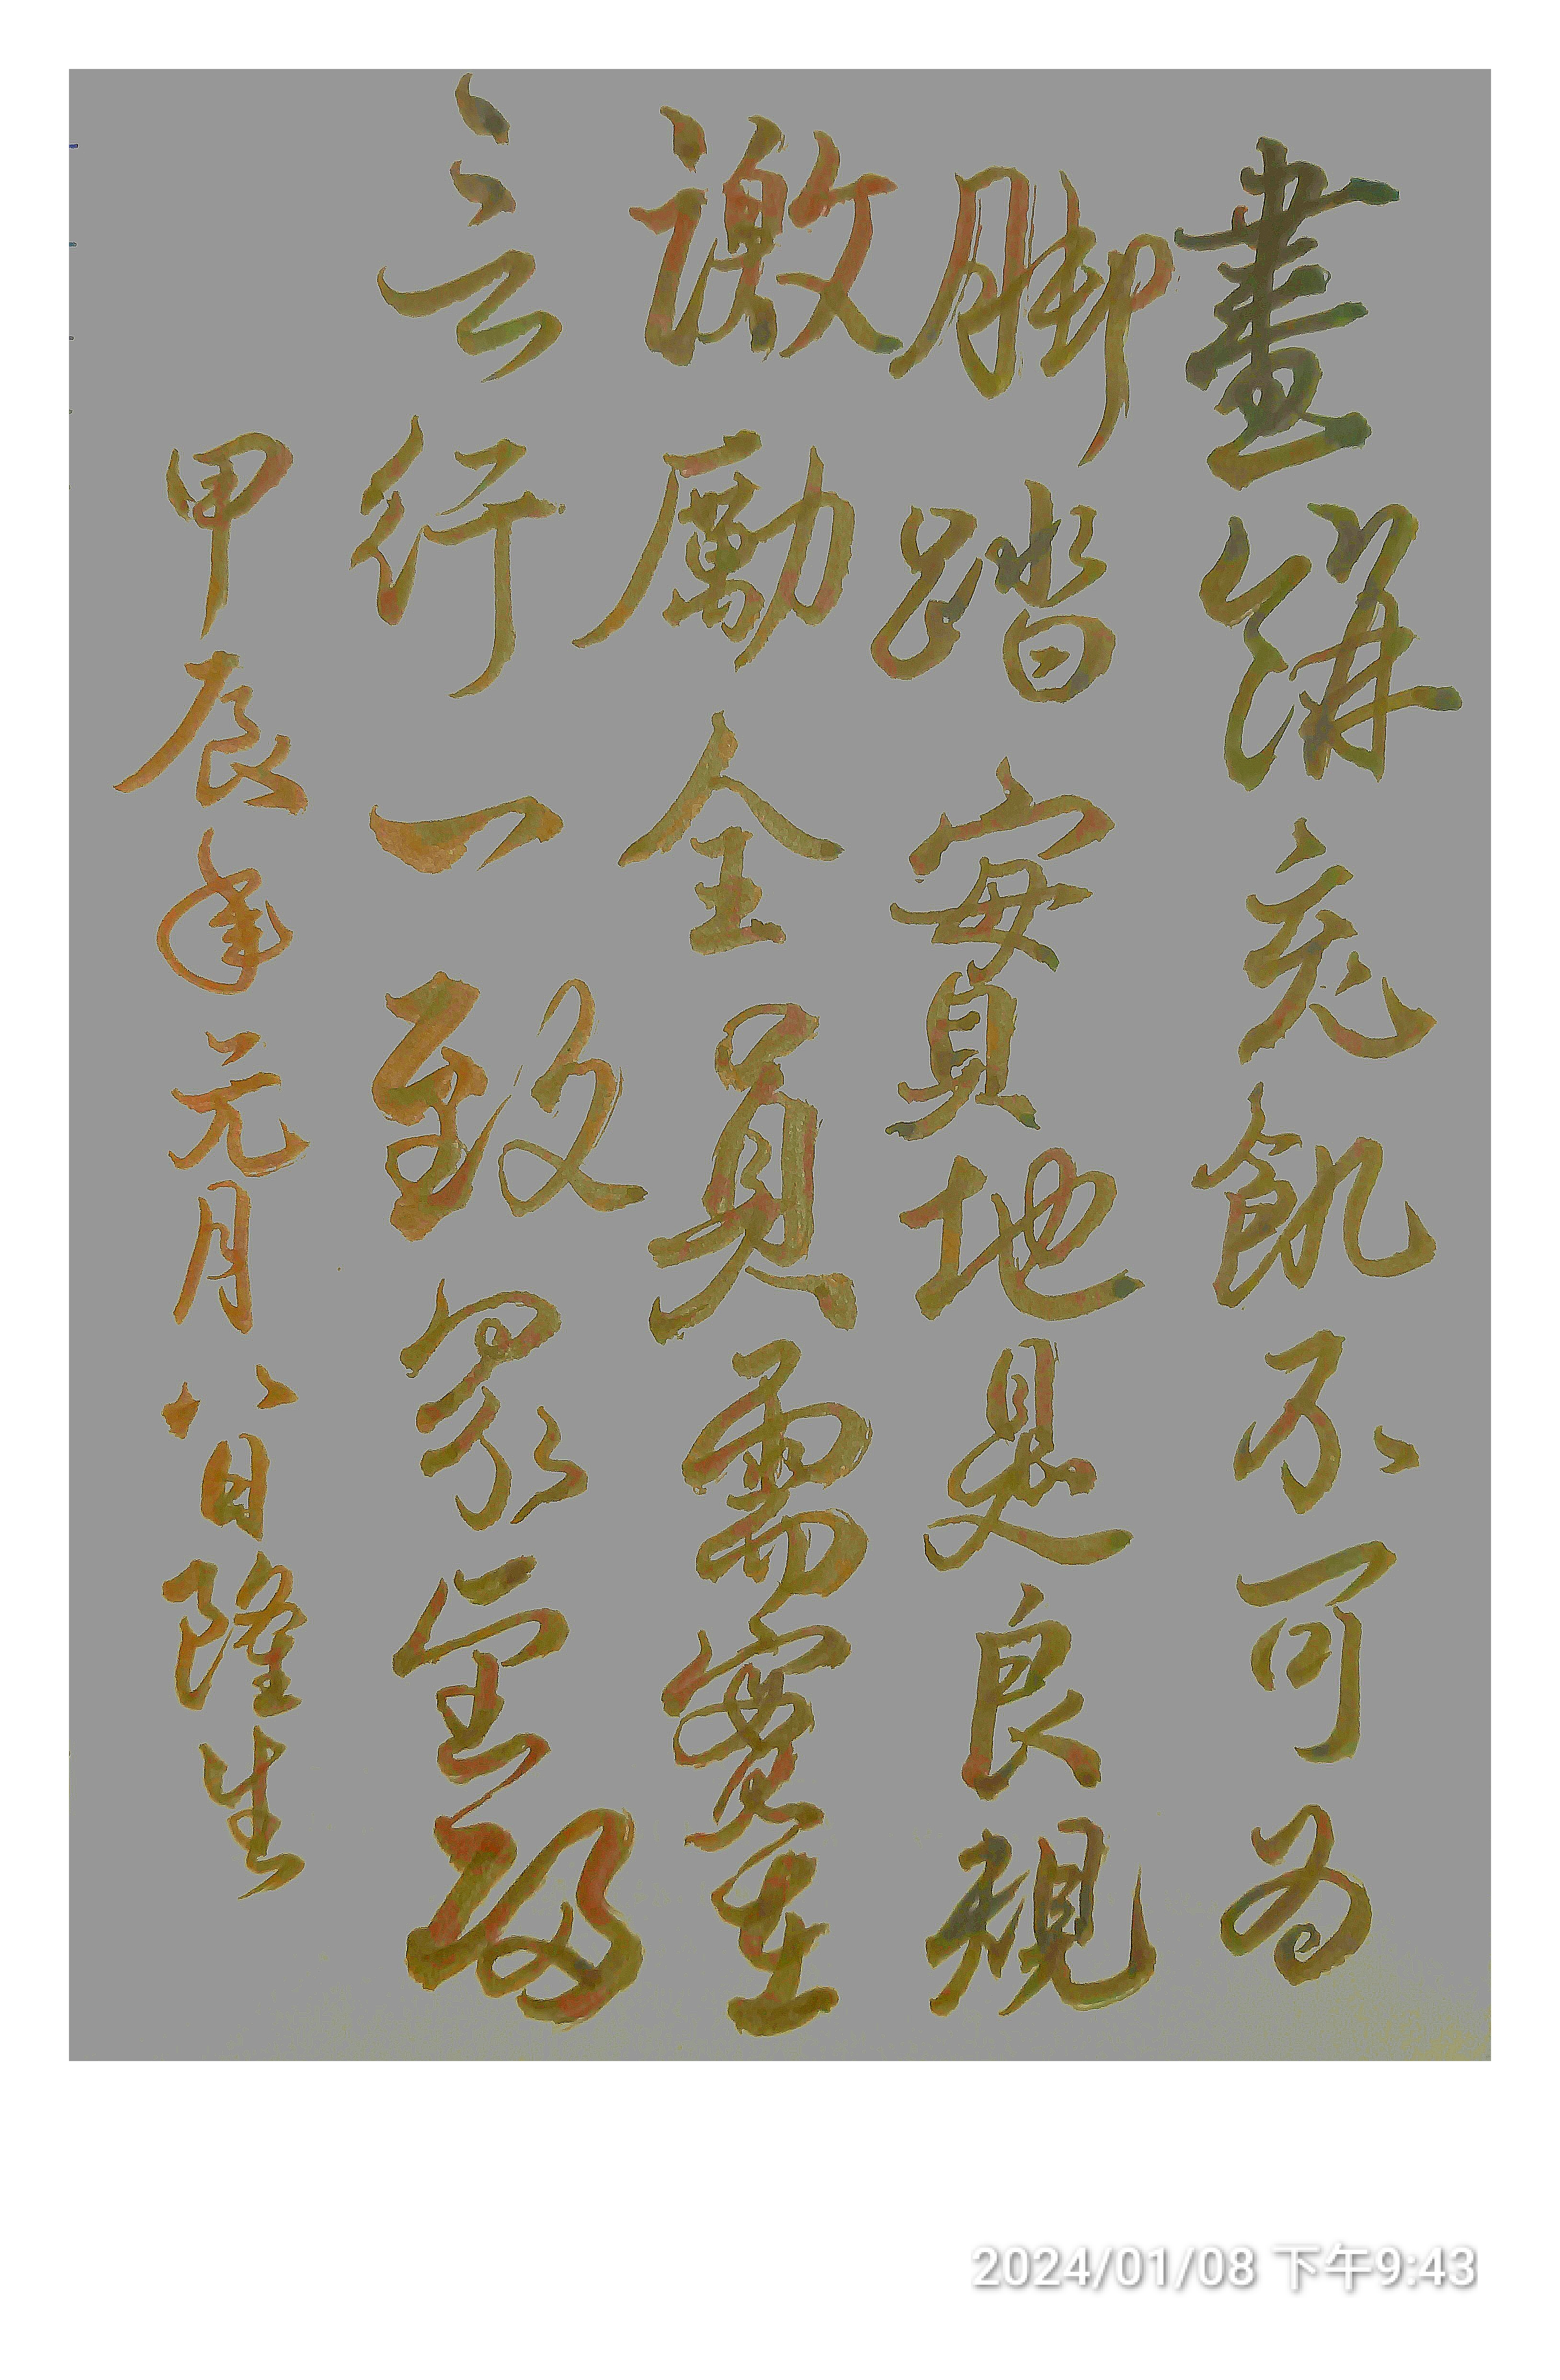 畫餅充飢不可為
脚踏實地是良規
激勵全員需實在
言行一致眾宜歸
甲辰年元月八日隆生
2024/01/08 下午9:43